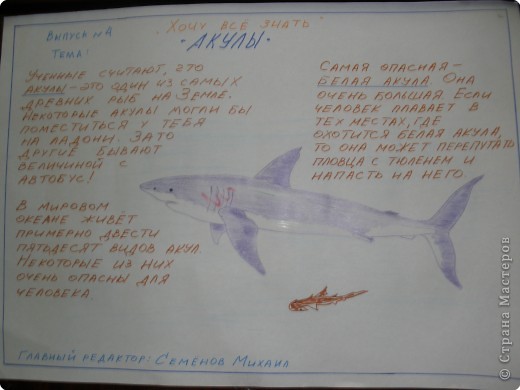 Хочу всё знать
Выпуск №4
Тема:
"АКУЛЫ"
Учённые считают, что
акулы - это один из самых
древних рыб на Земле.
Некоторые акулы могли бы
поместиться у тебя
на ладони. Зато
другие бывают
величиной с
автобус!
В мировом
океане живёт
примерно двести
пятьдесят видов акул.
Некоторые из них
очень опасны для
человека.
Самая опасная -
белая акула. Она
очень большая. Если
человек плавает в
тех местах, где
охотится белая акула,
то она может перепутать
пловца с тюленем и
напасть на него.
Главный редактор: Семёнов Михаил
© Страна Мастеров